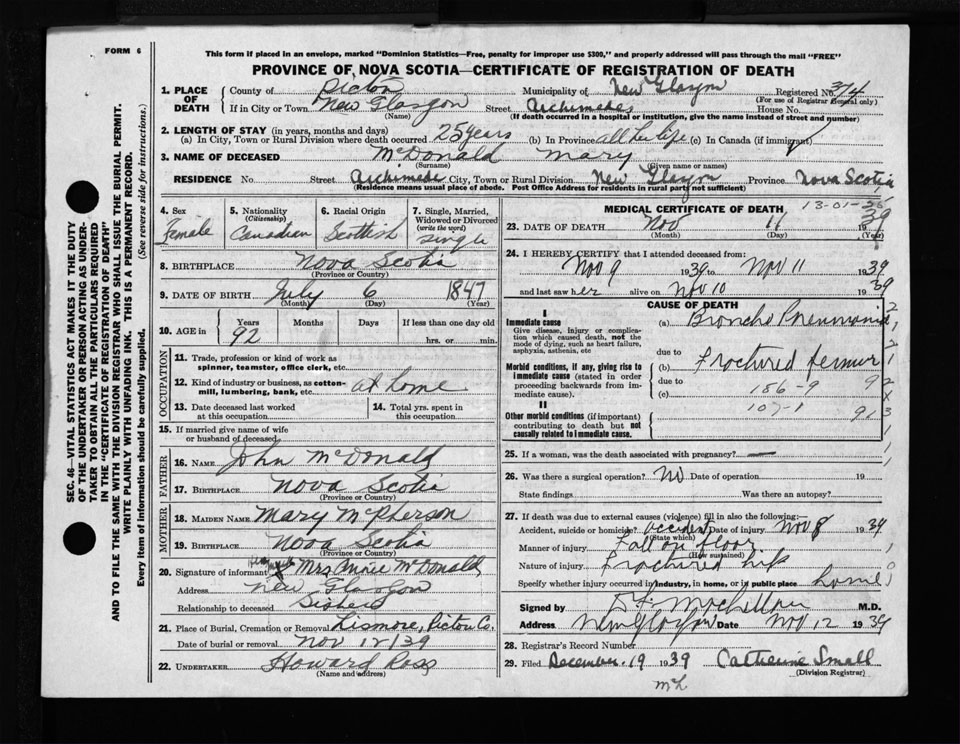 FORM 6
This form if placed in an envelope, marked "Dominion Statistics—Free, penalty for improper use $300," and properly addressed will pass through the mail "FREE"
PROVINCE OF NOVA SCOTIA—CERTIFICATE OF REGISTRATION OF DEATH
SEC. 46—VITAL STATISTICS ACT MAKES IT THE DUTY
OF THE UNDERTAKER OR PERSON ACTING AS UNDER-
TAKER TO OBTAIN ALL THE PARTICULARS REQUIRED
IN THE "CERTIFICATE OF REGISTRATION OF DEATH"
AND TO FILE THE SAME WITH THE DIVISION REGISTRAR WHO SHALL ISSUE THE BURIAL PERMIT.
WRITE PLAINLY WITH UNFADING INK. THIS IS A PERMANENT RECORD.
Every item of information should be carefully supplied. (See reverse side for instructions.)
1. PLACE OF DEATH
County of Pictou Municipality of New Glasgow Registered No. 374
(For use of Registrar General only)
If in City or Town New Glasgow Street Archimedes House No.
(Name) (If death occurred in a hospital or institution, give the name instead of street and number)
2. LENGTH OF STAY (in years, months and days)
(a) In City, Town or Rural Division where death occurred 25 years (b) In Province all her life (c) In Canada (if immigrant)
3. NAME OF DECEASED McDonald Mary
(Surname) (Given name or names)
RESIDENCE No. Street Archimede City, Town or Rural Division New Glasgow Province Nova Scotia
(Residence means usual place of abode. Post Office Address for residents in rural parts not sufficient)
4. Sex
Female
5. Nationality
(Citizenship)
Canadian
6. Racial Origin
Scottish
7. Single, Married,
Widowed or Divorced
(write the word)
Single
8. BIRTHPLACE Nova Scotia
(Province or Country)
9. DATE OF BIRTH July 6 1847
(Month) (Day) (Year)
10. AGE in
Years Months Days If less than one day old
92 hrs. or min.
OCCUPATION
11. Trade, profession or kind of work as
spinner, teamster, office clerk, etc.
12. Kind of industry or business, as cotton-
mill, lumbering, bank, etc. at home
13. Date deceased last worked
at this occupation
14. Total yrs. spent in
this occupation
15. If married give name of wife
or husband of deceased
FATHER
16. NAME John McDonald
17. BIRTHPLACE Nova Scotia
(Province or Country)
MOTHER
18. MAIDEN NAME Mary McPherson
19. BIRTHPLACE Nova Scotia
(Province or Country)
20. Signature of informant Mrs Annie McDonald
Address New Glasgow
Relationship to deceased Sister
21. Place of Burial, Cremation or Removal Lismore, Pictou Co.
Date of burial or removal Nov 12/39
22. UNDERTAKER Howard Ross
(Name and address)
MEDICAL CERTIFICATE OF DEATH 13-01-26
23. DATE OF DEATH Nov 11 1939
(Month) (Day) (Year)
24. I HEREBY CERTIFY that I attended deceased from:
Nov 9 1939 to Nov 11 1939
and last saw her alive on Nov 10 1939
CAUSE OF DEATH
I
Immediate cause
Give disease, injury or complica-
tion which caused death, not the
mode of dying, such as heart failure,
asphyxia, asthenia, etc
(a) Broncho Pneumonia
due to
Morbid conditions, if any, giving rise to
immediate cause (stated in order
proceeding backwards from im-
mediate cause).
(b) Fractured femur
due to
(c) 186-9
II
Other morbid conditions (if important)
contributing to death but not
causally related to immediate cause.
107-1
25. If a woman, was the death associated with pregnancy? —
26. Was there a surgical operation? No Date of operation 19
State findings Was there an autopsy?
27. If death was due to external causes (violence) fill in also the following:
Accident, suicide or homicide? accident Date of injury Nov 8 1939
(State which)
Manner of injury Fall on floor
(How sustained)
Nature of injury Fractured hip
Specify whether injury occurred in industry, in home, or in public place home
Signed by M.D.
Address New Glasgow Date Nov 12 1939
28. Registrar's Record Number
29. Filed December 19 1939 Catherine Small
(Division Registrar)